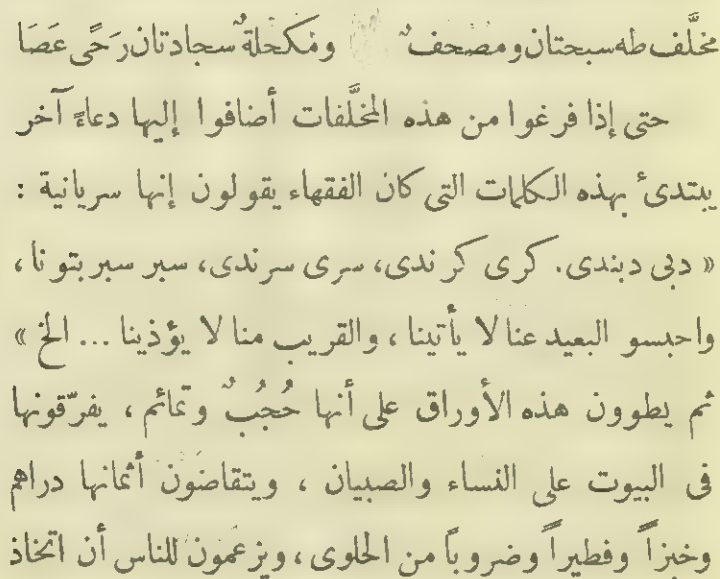 مخلَّف طه سبحتان ومصحفٌ ومكحلةٌ سجادتان رَحًى عَصَا
حتى إذا فرغوا من هذه المخلَّفات أضافوا إليها دعاءً آخر
يبتدئُ بهذه الكلمات التى كان الفقهاء يقولون إنها سريانية :
« دبى دبندى. كرى كرندى، سرى سرندى، سبر سبر بتونا،
واحبسو البعيد عنا لا يأتينا ، والقريب منا لا يؤذينا ... الخ »
ثم يطوون هذه الأوراق على أنها حُجُبٌ وتمائم ، يفرّقونها
فى البيوت على النساء والصبيان ، ويتقاضَوْن أثمانها دراهم
وخبزاً وفطيراً وضروباً من الحلوى ، ويزعمون للناس أن اتخاذ